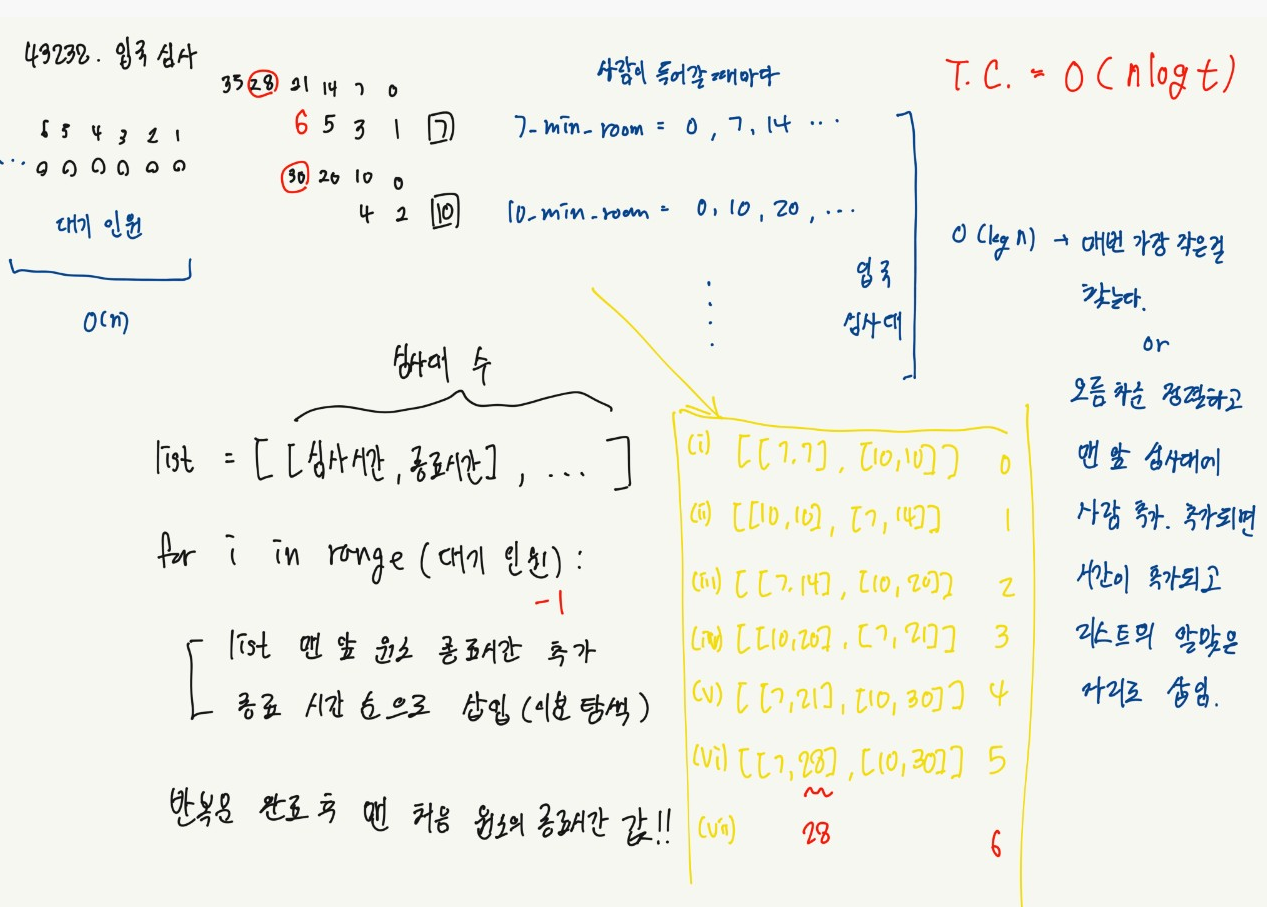 43238. 입국 심사
35 28 21 14 7 0
6 5 3 1 7
30 20 10 0
4 2 10
6 5 4 3 2 1
대기 인원
O(n)
사람이 들어갈 때마다
7-min-room = 0, 7, 14 ...
10-min-room = 0, 10, 20, ...
입국
심사대
T.C. = O(nlogt)
O(logn) → 매번 가장 작은걸
찾는다.
or
오름차순 정렬하고
맨 앞 심사대에
사람 추가. 추가되면
시간이 추가되고
리스트의 알맞은
자리로 삽입.
심사대 수
list = [[심사시간, 종료시간], ...]
for i in range(대기 인원):
-1
list 맨 앞 원소 종료시간 추가
종료 시간 순으로 삽입(이분 탐색)
반복문 완료 후 맨 처음 원소의 종료시간 값!!
(i) [[7.7], [10,10]] 0
(ii) [[10,10], [7,14]] 1
(iii) [[7.14], [10,20]] 2
(iv) [[10,20], [7,21]] 3
(v) [[7,21], [10,30]] 4
(vi) [[7,28], [10,30]] 5
(vii) 28 6